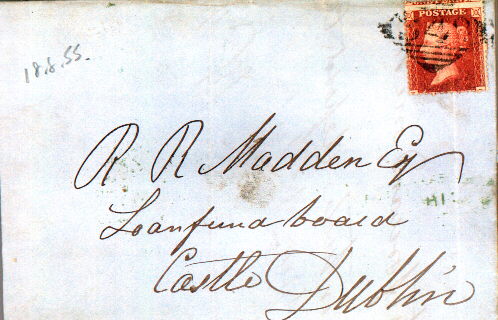 POSTAGE
18.8.55.
R R Madden Esq
Loanfund board
Castle Dublin